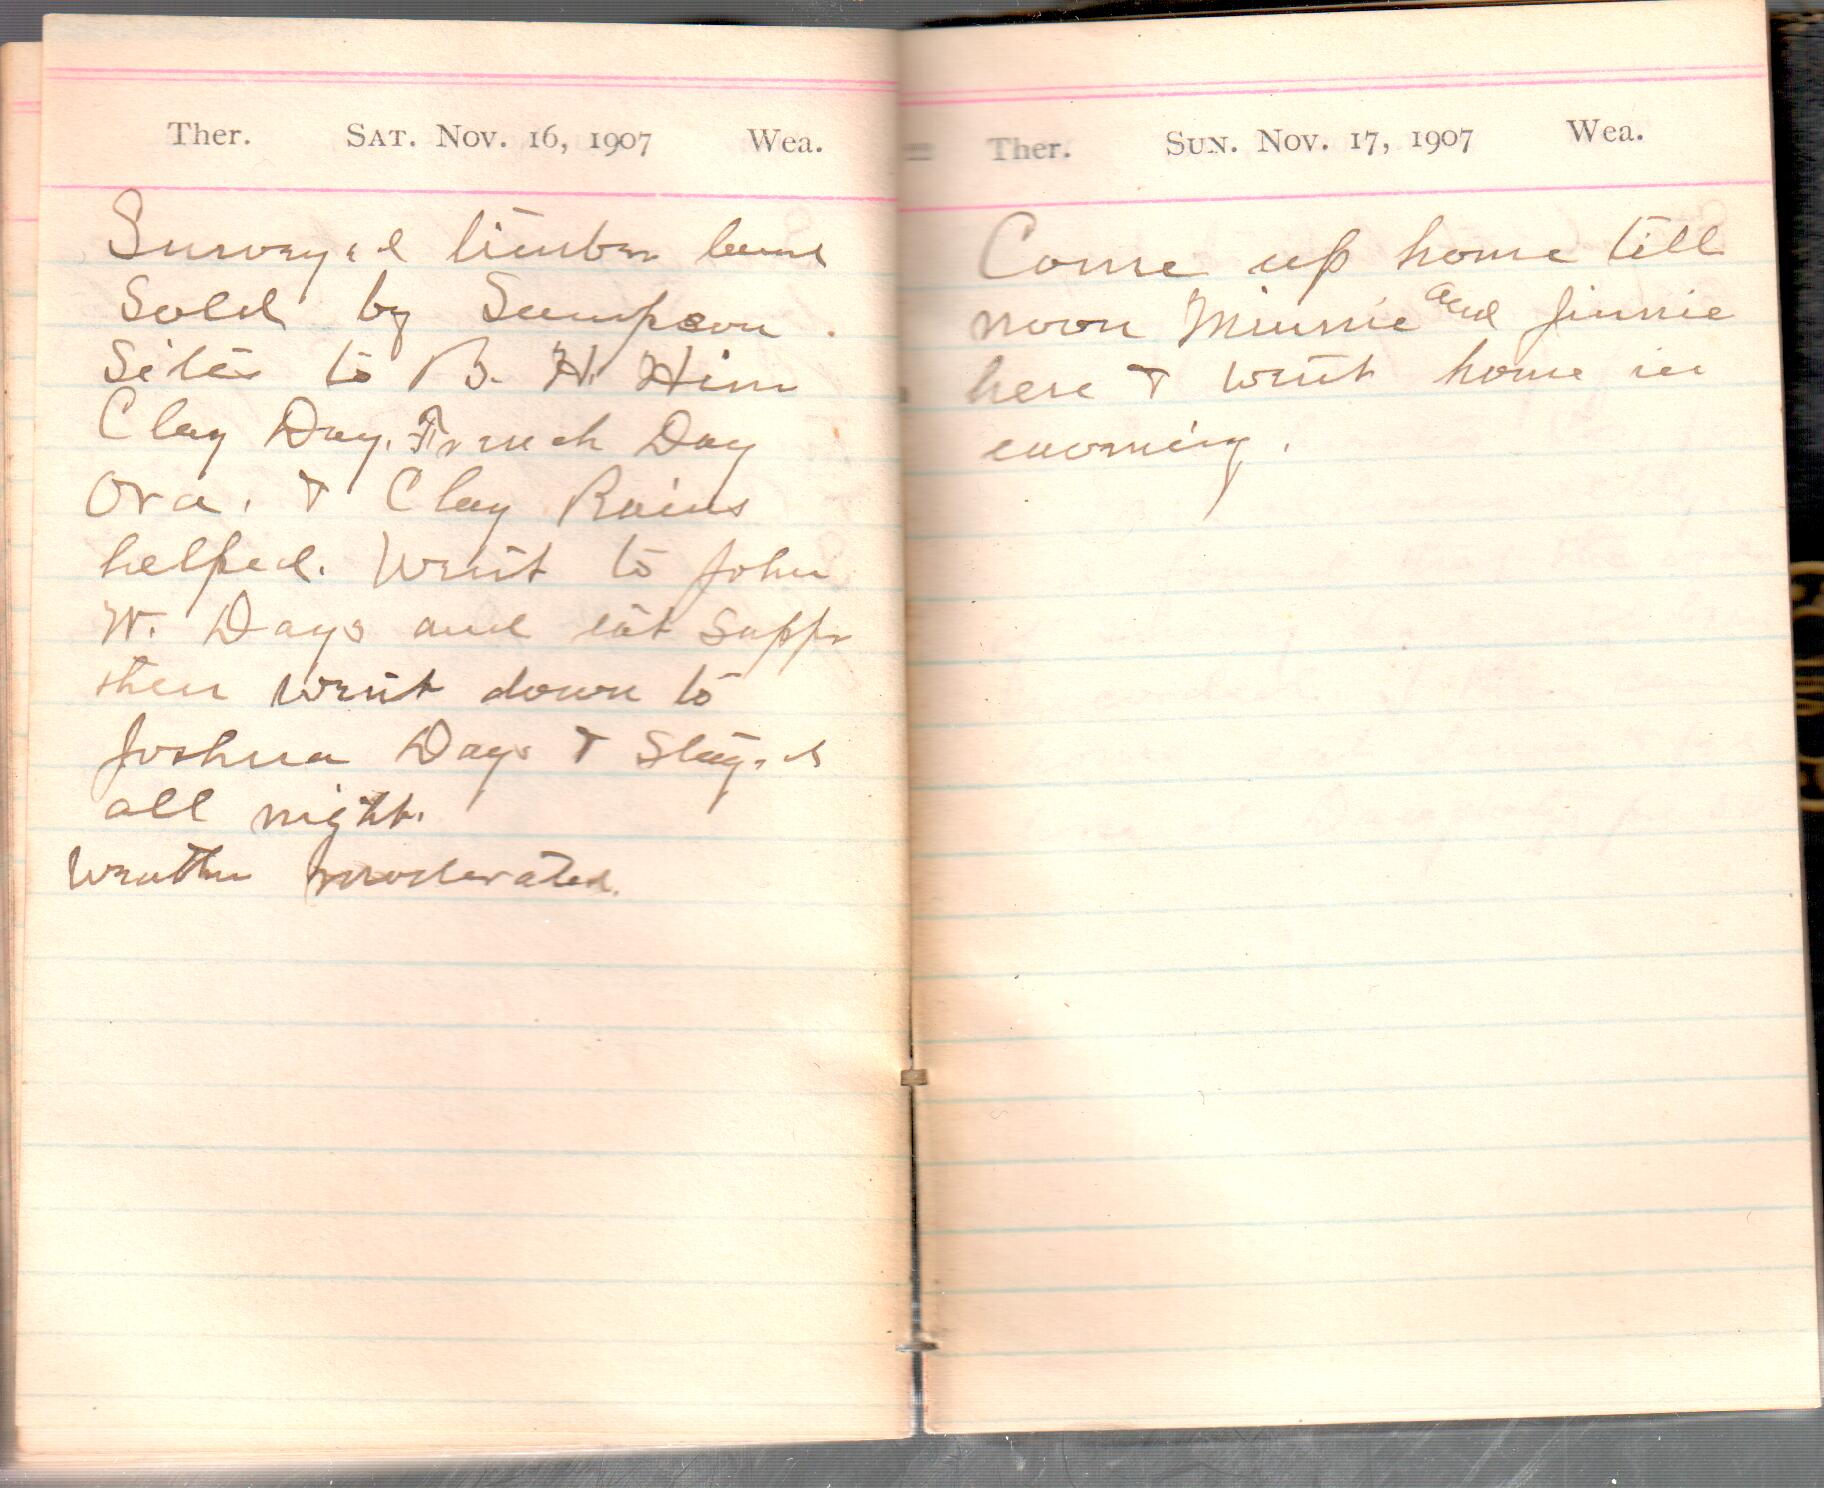 Ther. Sat. Nov. 16, 1907 Wea.
Surveyed timber land
Sold by Sampson
Sites to B. H. Him
Clay Day. French Day
Ora. & Clay Rains
helped. Went to John
W. Days and eat Supper
then went down to
Joshua Days & Stayed
all night.
Weather moderated.
Ther. Sun. Nov. 17, 1907 Wea.
Come up home till
noon Minnie and Jinnie
here & went home in
evening.